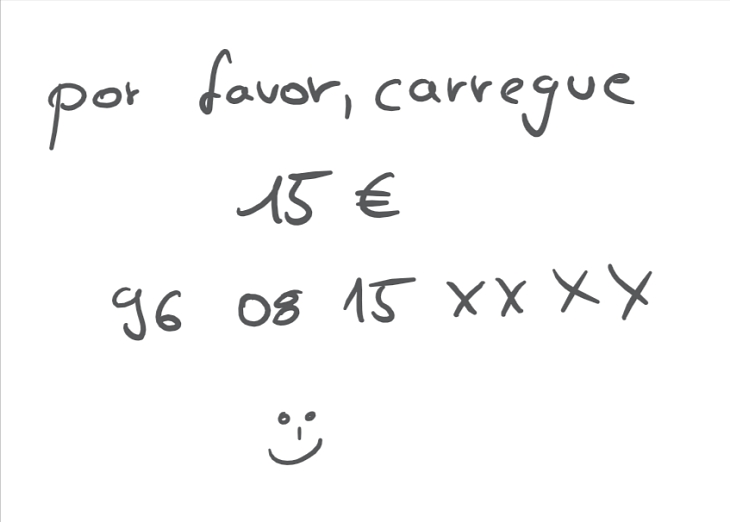 por favor, carregue
15 €
96 08 15 XX XX